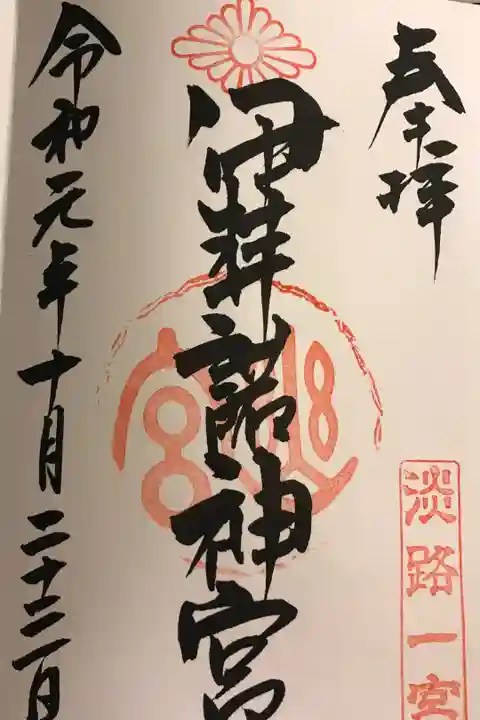 奉拝
淡路一宮
伊弉諾神宮
令和元年十月二十二日